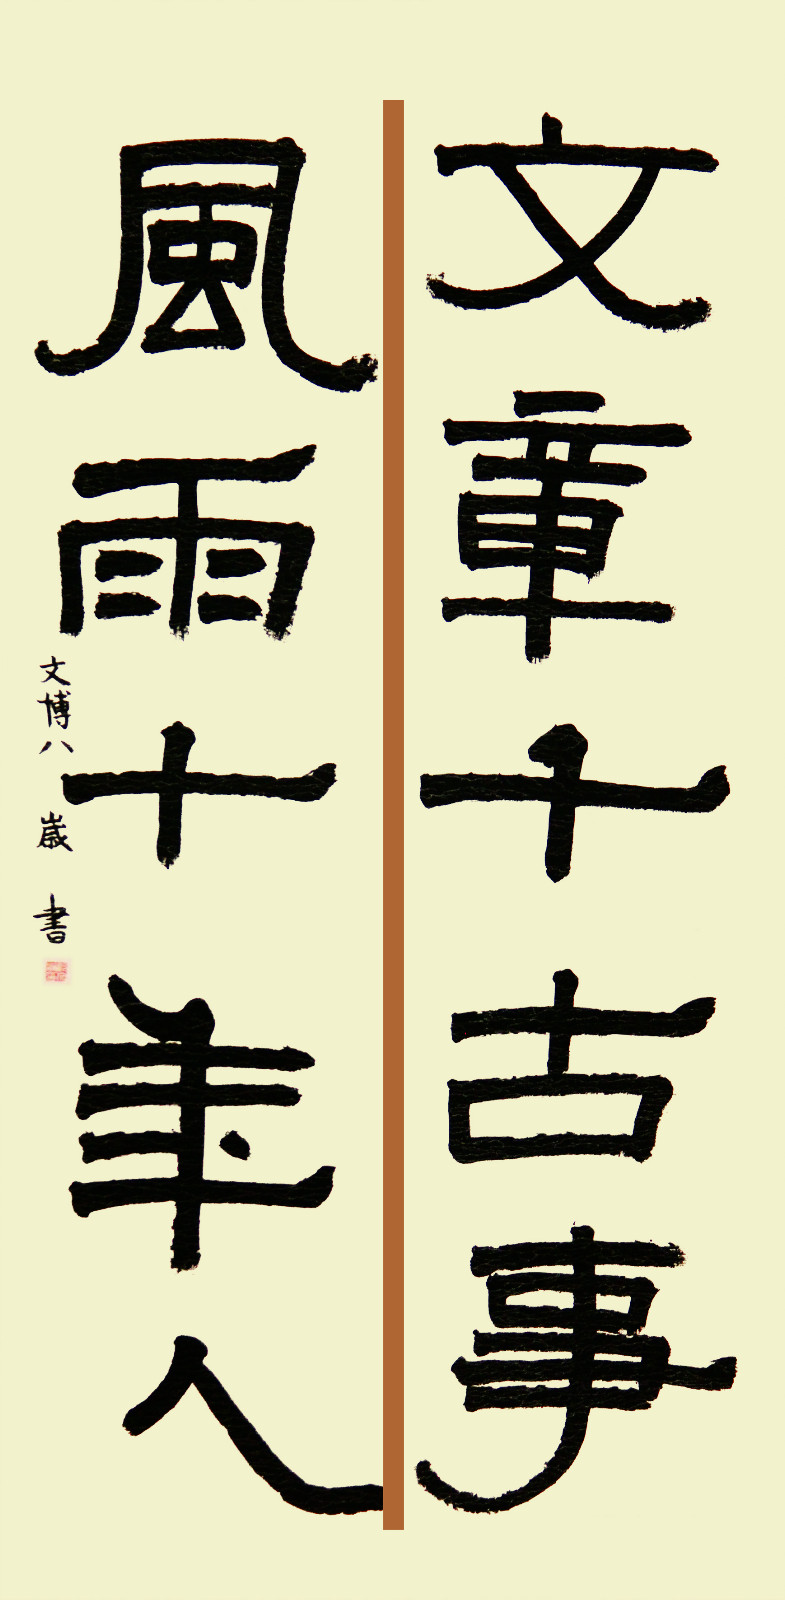 文章千古事
風雨十年人
文博八歲書